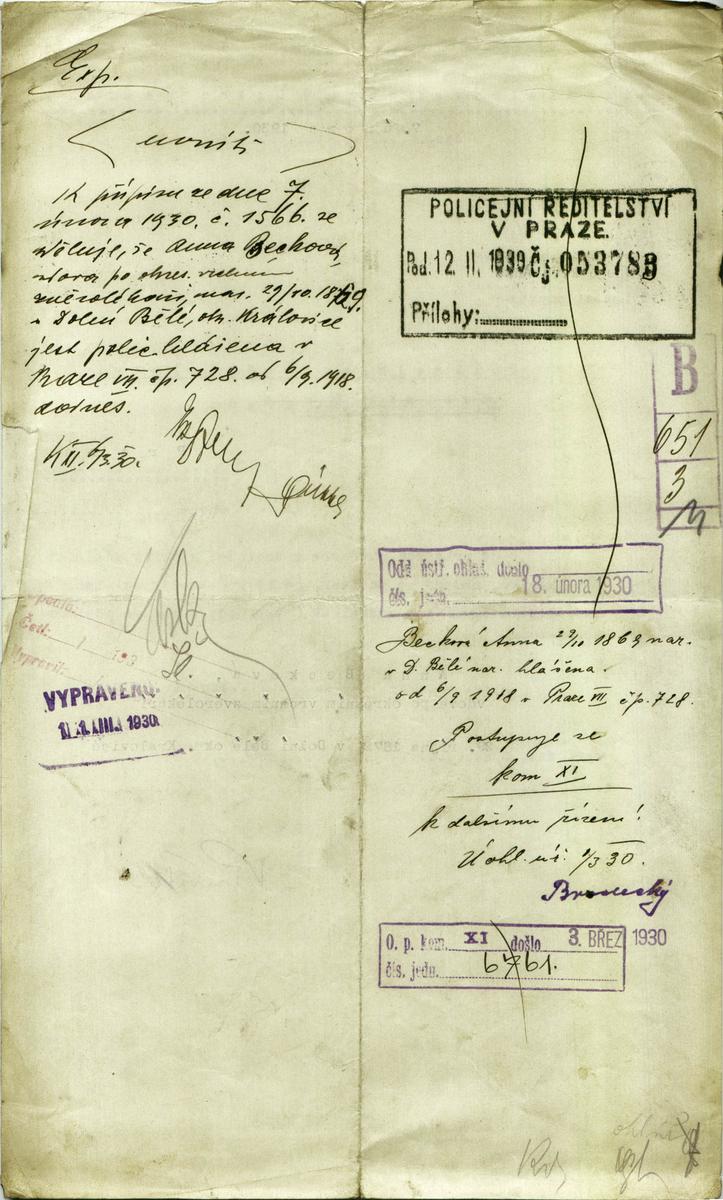 Exp.
K přípisu ze dne 7.
února 1930. č. 1566. se
sděluje, že Anna Becková,
vdova po okres. vrchním
zvěrolékaři, nar. 29/10. 1869.
v Dolní Bělé, okr. Kralovice
jest polic. hlášena v
Praze VII. čp. 728. od 6/9. 1918.
dodnes.
KXI. 6/3.30.
Četl:
Vypravil:
VYPRAVENO
1930
POLICEJNÍ ŘEDITELSTVÍ
V PRAZE.
Pod. 12. II. 1930 Čj. 053783
Přílohy:
B
651
3
Odd. ústř. ohlaš. došlo
18. února 1930
čís. jedn.
Becková Anna 29/10 1869 nar.
v D. Bělé nar. hlášena
od 6/9 1918 v Praze VII čp. 728.
Postupuje se
kom XI
k dalšímu řízení!
Úohl. úř. 1/3 30.
O. p. kom. XI došlo 3. BŘEZ 1930
čís. jedn. 6761.